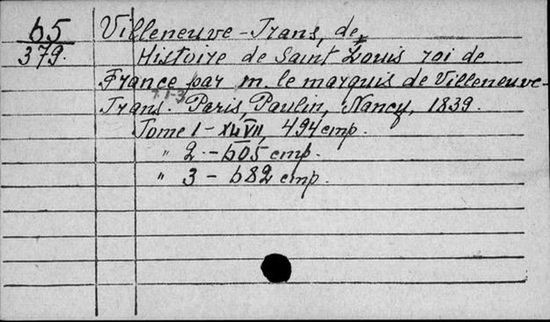 65
379.
Villeneuve-Trans, de,
Histoire de Saint Louis roi de
France par m. le marquis de Villeneuve-
Т.1-3
Trans. Paris, Paulin, Nancy, 1839.
Tome 1 - 494 стр.
„ 2. - 605 стр.
„ 3 - 682 стр.